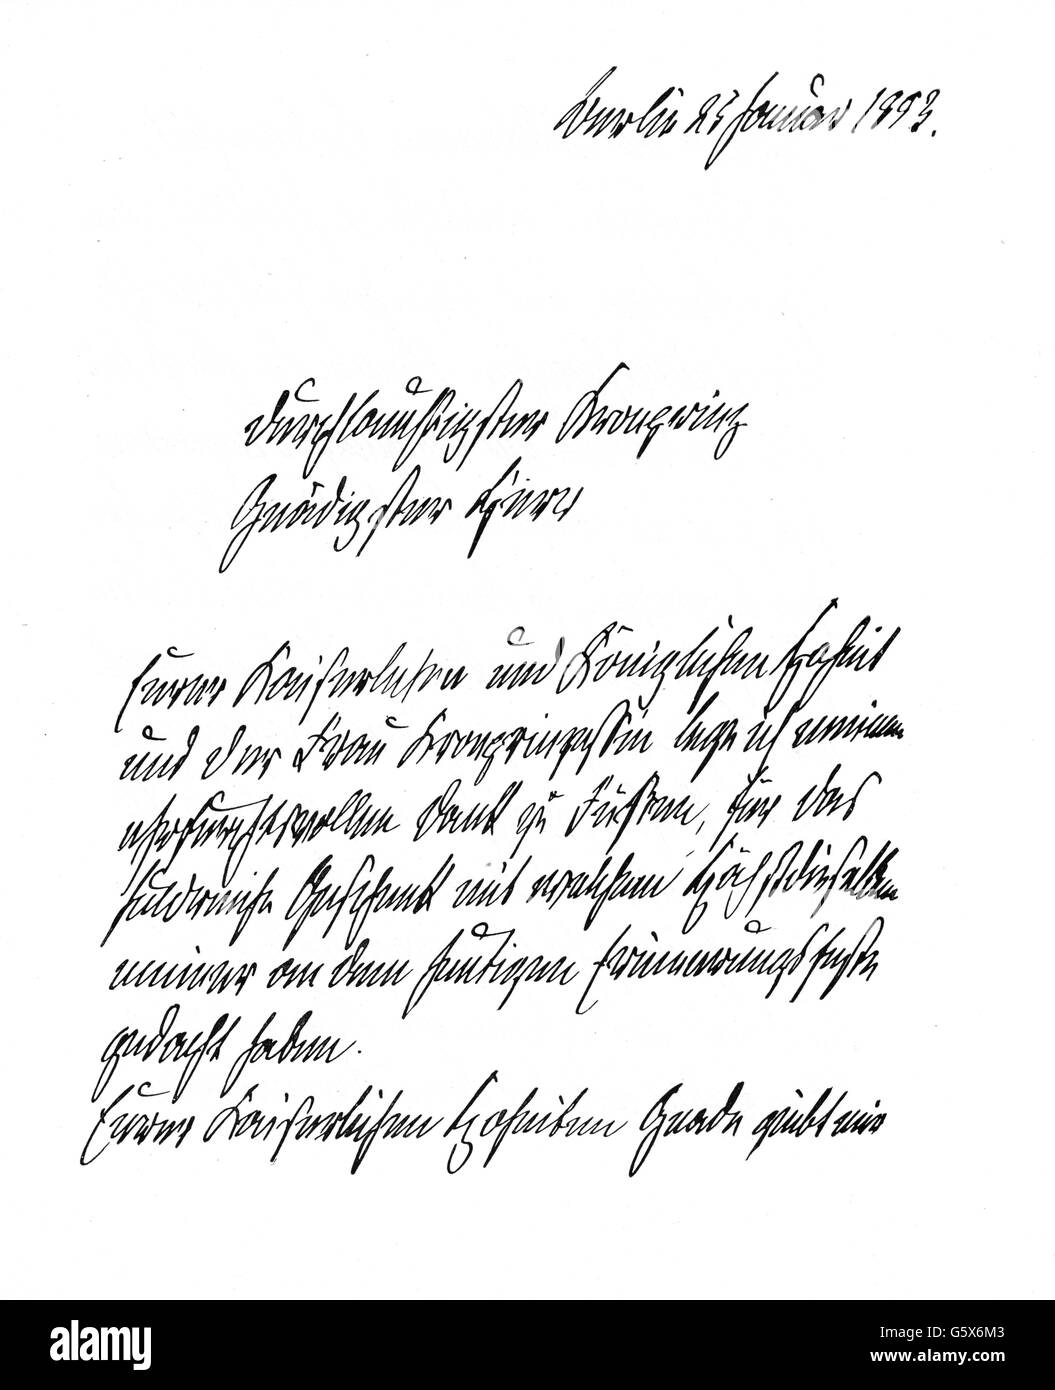 Berlin 25 Januar 1883.
Durchlauchtigster Kronprinz
Gnädigster Herr
Eurer Kaiserlichen und Königlichen Hoheit
und der Frau Kronprinzessin lege ich meinen
ehrfurchtsvollen Dank zu Füßen, für das
huldreiche Geschenk mit welchem Höchstdieselben
meiner an dem heutigen Erinnerungsfeste
gedacht haben.
Eurer Kaiserlichen Hoheiten Gnade giebt mir
alamy
alamy
Image ID: G5X6M3
www.alamy.com